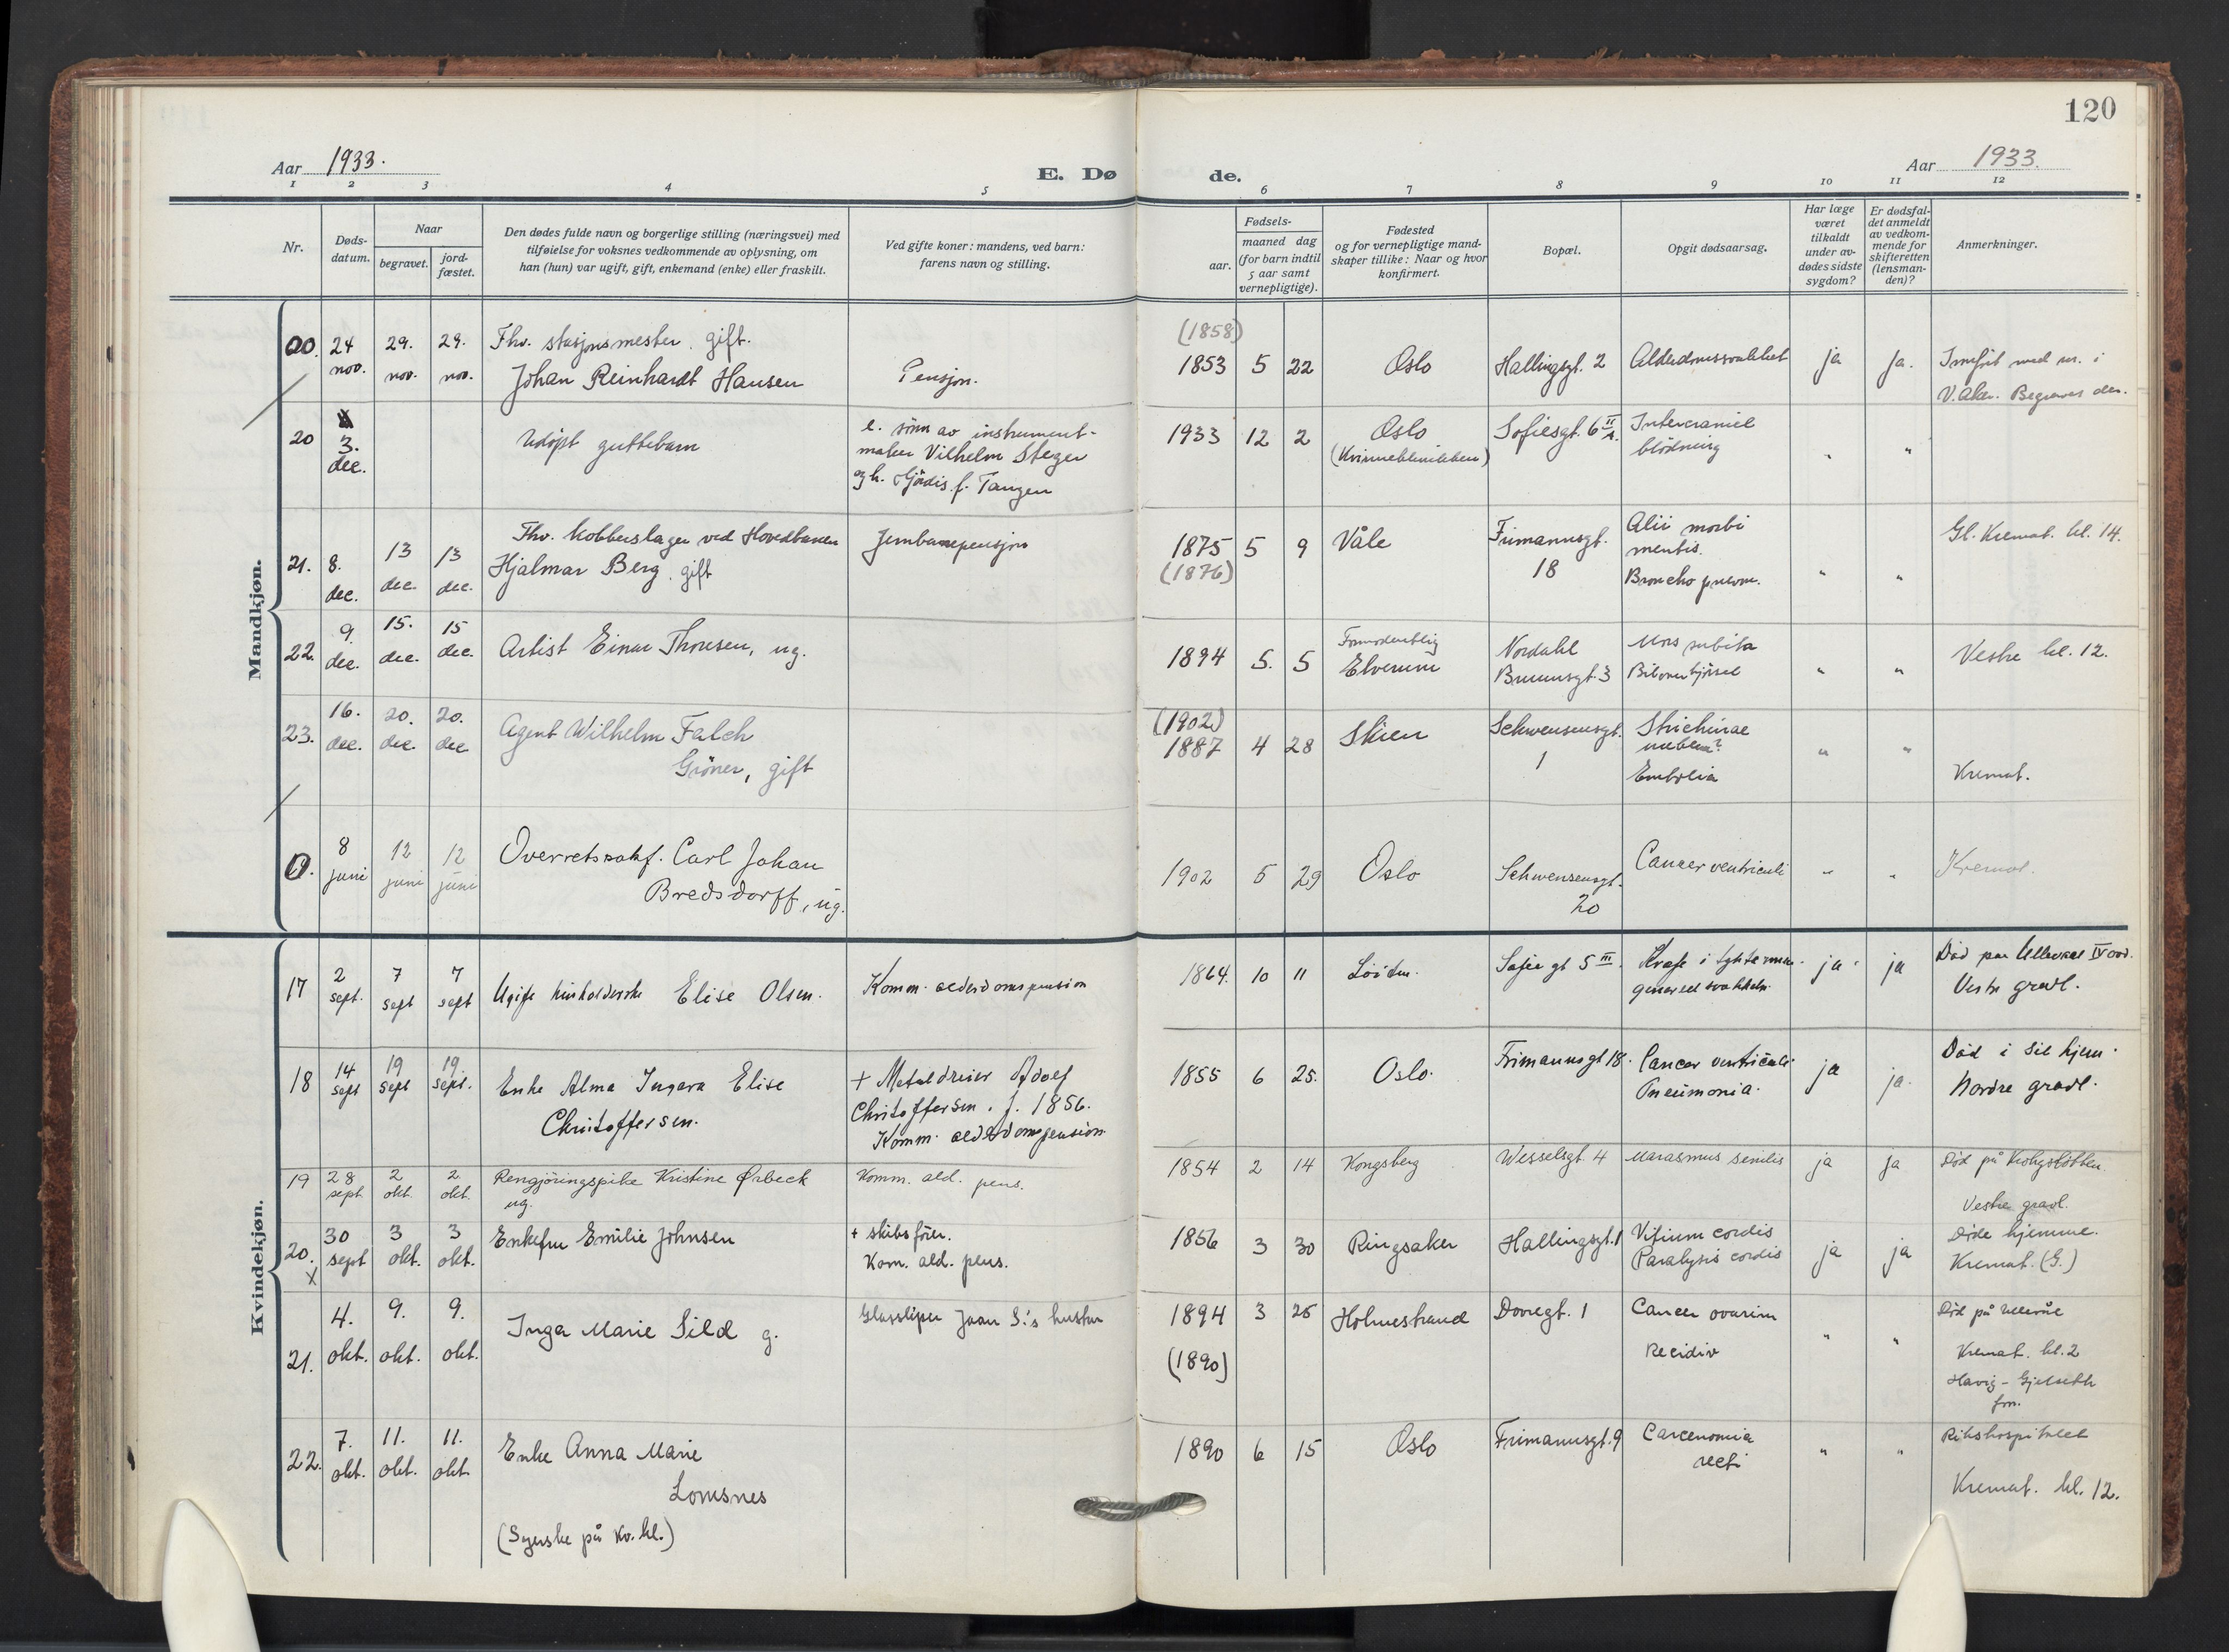 120
Aar 1933.
E. Dø de.
Aar 1933.
1 2 3 4 5 6 7 8 9 10 11 12
Nr.
Døds-
datum.
Naar
begravet.
jord-
fæstet.
Den dødes fulde navn og borgerlige stilling (næringsvei) med
tilføielse for voksnes vedkommende av oplysning, om
han (hun) var ugift, gift, enkemand (enke) eller fraskilt.
Ved gifte koner: mandens, ved barn:
farens navn og stilling.
Fødsels-
aar.
maaned dag
(for barn indtil
5 aar samt
vernepligtige).
Fødested
og for vernepligtige mand-
skaper tillike: Naar og hvor
konfirmert.
Bopæl.
Opgit dødsaarsag.
Har læge
været
tilkaldt
under av-
dødes sidste
sygdom?
Er dødsfal-
det anmeldt
av vedkom-
mende for
skifteretten
(lensman-
den)?
Anmerkninger.
Mandkjøn.
24
nov.
29.
nov.
29.
nov.
Fhv. stasjonsmester, gift.
Johan Reinhardt Hansen
Pensjon.
(1858)
1853 5 22
Oslo
Hallingsgt. 2
Alderdomssvakhet
ja
ja.
Innført med nr. i
V. Aker. Begraves der.
20
3.
dec.
Udøpt guttebarn
e. sønn av instrument-
maker Vilhelm Steger
og h. Hjørdis f. Tangen
1933 12 2
Oslo
(Kvinneklinikken)
Sofiesgt. 6 II
Intercraniel
blødning
"
"
21.
8.
dec.
13
dec.
13
dec.
Fhv. kobberslager ved Hovedbanen
Hjalmar Berg, gift
Jernbanepensjon
1875 5 9
(1876)
Våle
Frimannsgt.
18
Alii morbi
mentis.
Broncho pneum.
"
"
Gl. Kremat. kl. 14.
22.
9.
dec.
15.
dec.
15
dec.
Artist Einar Thoresen, ug.
1894 5. 5
Formodentlig
Elverum
Nordahl
Brunnsgt. 3
Mors subita
Biloverkjørsel
"
"
Vestre kl. 12.
23.
16.
dec.
20.
dec.
20.
dec
Agent Wilhelm Falch
Gröner, gift
(1902)
1887 4 28
Skien
Schwensensgt.
1
Embolia
"
"
Kremat.
8
juni
12
juni
12
juni
Overretssakf. Carl Johan
Bredsdorff, ug.
1902 5 29
Oslo
Schwensensgt.
20
Cancer ventriculi
"
"
Kremat.
Kvindekjøn.
17
2
sept.
7
sept
7
sept
Ugift husholderske Elise Olsen.
Komm. alderdomspension
1864. 10 11
Löiten.
Sofie gt 5 III.
Kræft i tyktarmen.
generel svakhet.
ja.
ja
Död paa Ullevaal IV avd.
Vestre gravl.
18
14
sept
19
sept
19
sept.
Enke Alma Ingara Elise
Christoffersen.
+ Metaldreier Adolf
Christoffersen. f. 1856.
Komm. alderdomspension
1855 6 25.
Oslo.
Frimannsgt 18.
Cancer ventriculi
Pneumonia.
ja
ja.
Död i sit hjem.
Nordre gravl.
19
28
sept
2
okt.
2
okt.
Rengjøringspike Kristine Ørbeck
ug.
Komm. ald. pens.
1854 2 14
Kongsberg
Wesselsgt. 4
Marasmus senilis
ja
ja
Død på Krohgstøtten.
Vestre gravl.
20.
x
30
sept
3
okt.
3
okt.
Enkefru Emilie Johnsen
+ skibsfører.
Kom. ald. pens.
1856 3 30
Ringsaker
Hallingsgt. 1
Vitium cordis
Paralysis cordis
ja
ja
Døde hjemme.
Kremat. (G.)
21.
4.
okt.
9.
okt.
9.
okt.
Inga Marie Sild g.
Glassliper Johan S.'s hustru
1894 3 26
(1890)
Holmestrand
Dovregt. 1
Cancer ovarium
Recidiv
"
"
Død på Ullevål
Kremat. kl. 2
Havig - Gjelseth
forr.
22.
7.
okt.
11.
okt.
11.
okt.
Enke Anna Marie
Lomsnes
(Syerske på Kv. kl.)
1890 6 15
Oslo
Frimannsgt. 9
Carcenomia
recti
"
"
Rikshospitalet
Kremat. kl. 12.